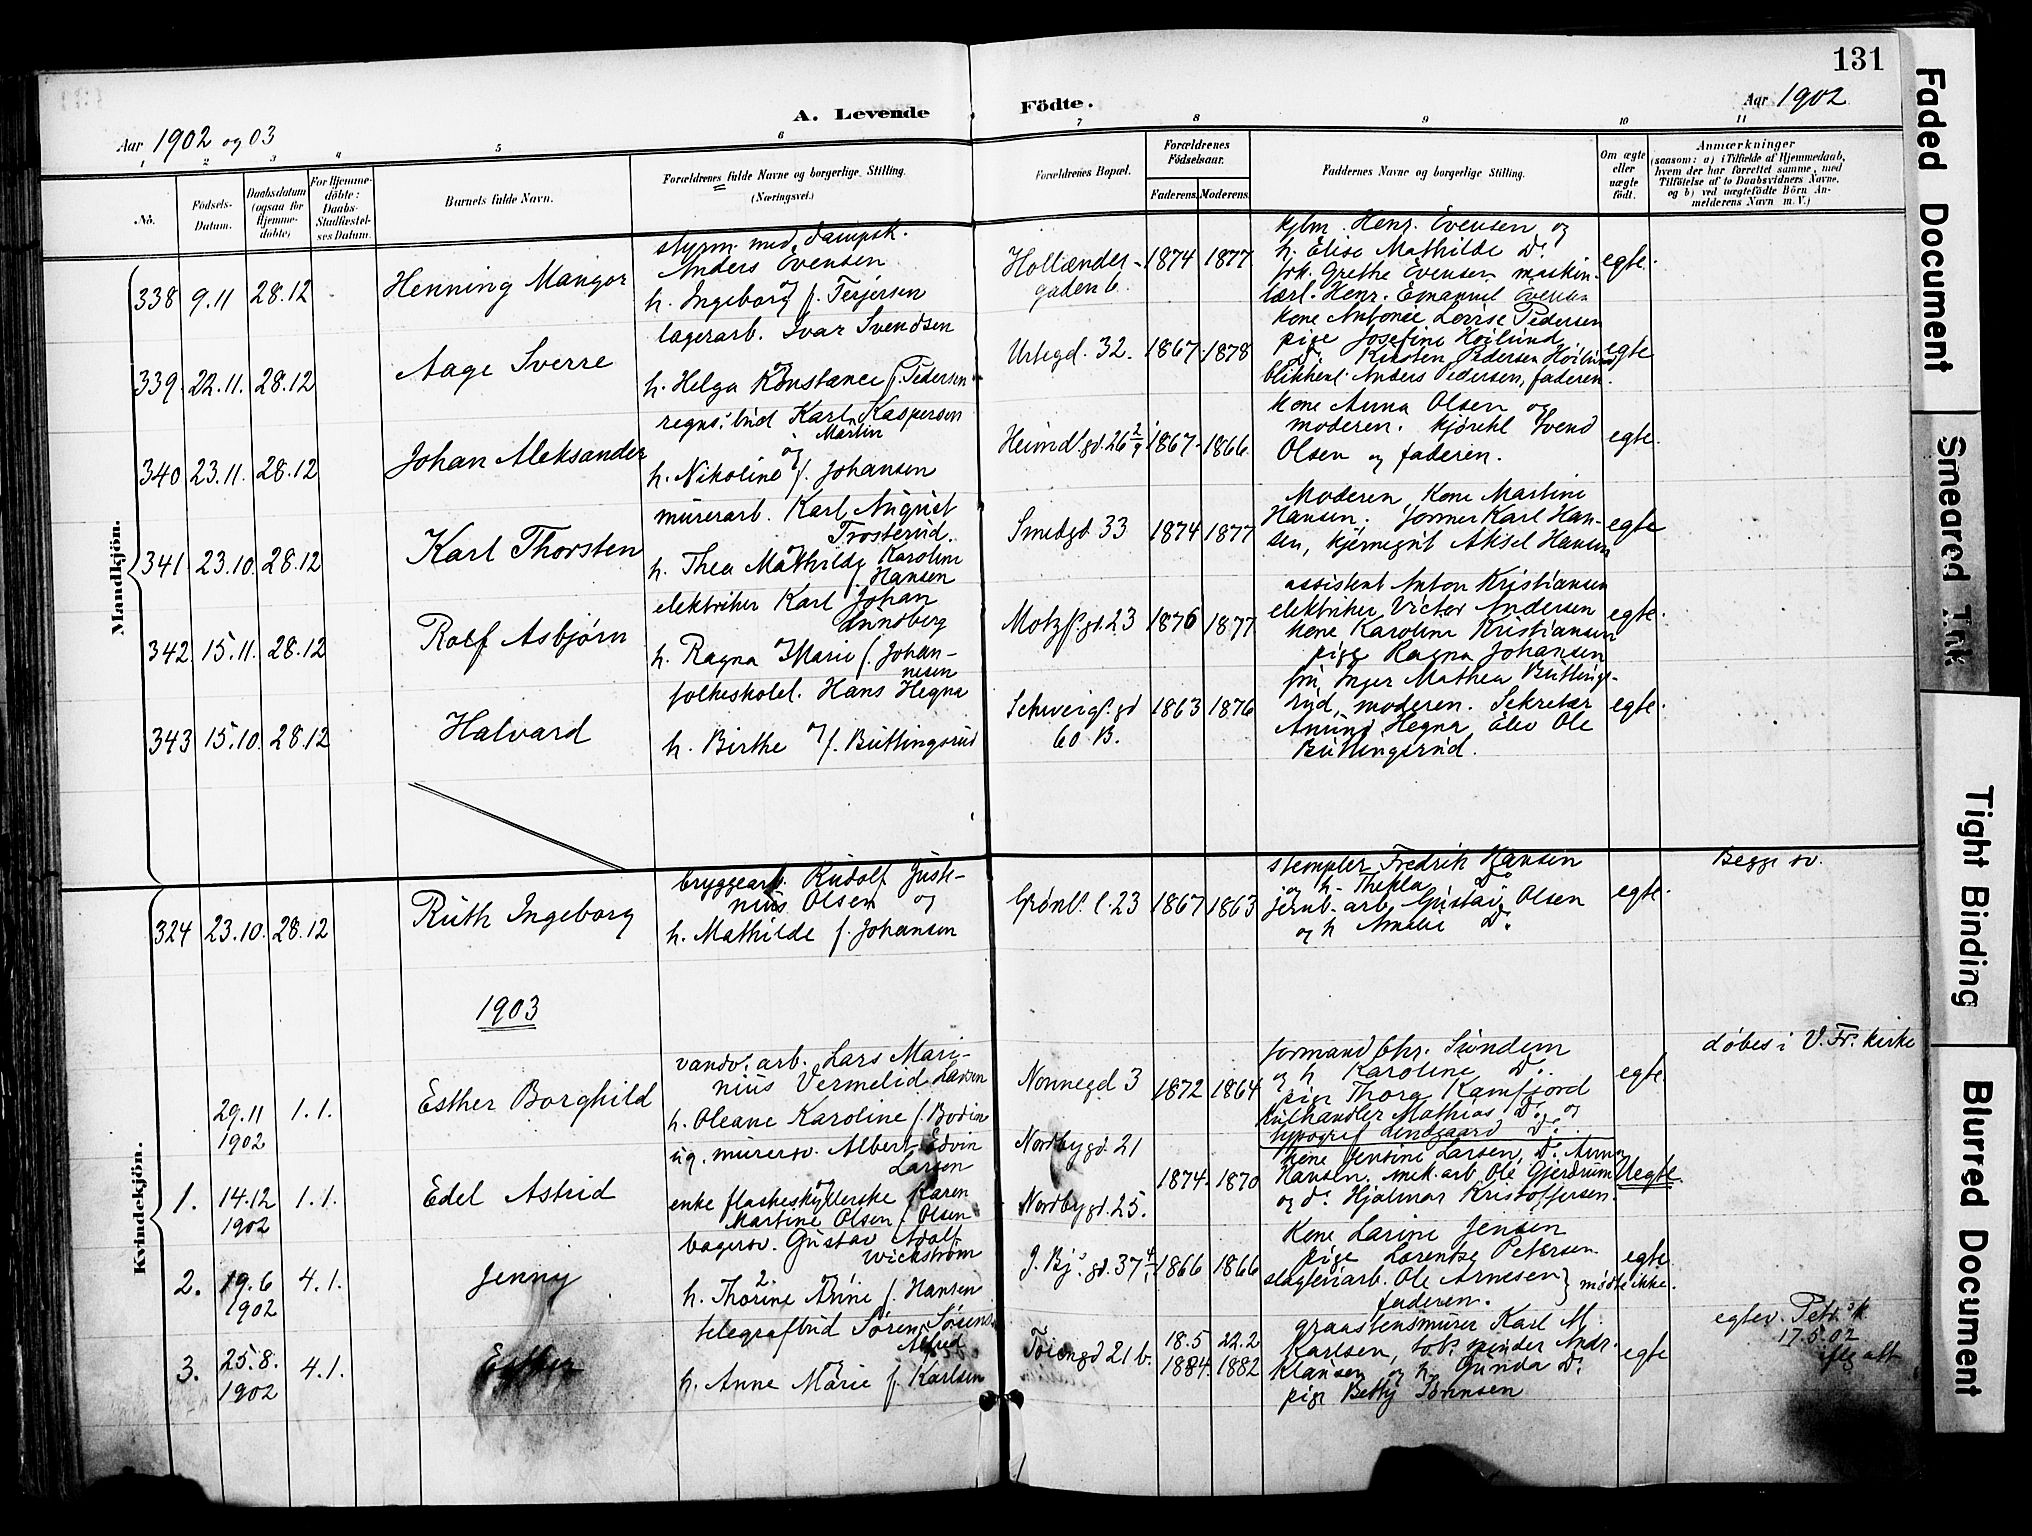 131
A. Levende Födte.
Aar 1902 og 03
Aar 1902
1 2 3 4 5 6 7 8 9 10 11
No.
Födsels-Datum.
Daabsdatum (ogsaa for Hjemme-döbte)
For Hjemme-döbte: Daabs-Stadfæstel-ses Datum.
Barnets fulde Navn.
Forældrenes fulde Navne og borgerlige Stilling. (Næringsvei.)
Forældrenes Bopæl.
Forældrenes Födselsaar.
Faderens. Moderens.
Faddernes Navne og borgerlige Stilling.
Om ægte eller uægte födt.
Anmærkninger
(saasom: a) i Tilfælde af Hjemmedaab,
hvem der har forrettet samme, med
Tilföielse af to Daabsvidners Navne,
og b) ved uægtefödte Börn An-
melderens Navn m. V.)
Mandkjön.
338 9.11 28.12
Henning Mangor
styrm. med dampsk.
Anders Evensen
og
h. Ingeborg f. Terjesen
Hollænder-
gaden 6.
1874 1877
kjbm. Henr. Evensen og
h. Elise Mathilde Do
frk. Grethe Evensen maskin-
lærl. Henr. Emanuel Evensen
egte.
339 22.11. 28.12
Aage Sverre
lagerarb. Ivar Svendsen
og
h. Helga Konstance f. Pedersen
Urtegd. 32.
1867 1878
kone Antonie Lovise Pedersen
pige Josefine Høilund
Do Kirsten Pedersen Høilund
blikkensl. Anders Pedersen, faderen.
egte
340 23.11. 28.12
Johan Aleksander
regns. bud Karl Kaspersen
Martin
og
h. Nikoline f. Johansen
Heimd.gd. 26 2/9
1867 1866
kone Anna Olsen og
moderen. kjørekl Svend
Olsen og faderen.
egte.
341 23.10. 28.12
Karl Thorsten
murerarb. Karl August
Trosterud.
og
h. Thea Mathilde Karoline
f. Hansen
Smedgd 33
1874 1877
Moderen, Kone Martine
Hansen. former Karl Han-
sen, kjernegut Aksel Hansen
egte
342 15.11. 28.12
Rolf Asbjørn
elektriker Karl Johan
Lunnsberg
og
h. Ragna Marie f. Johan-
nesen
Motzf. gd. 23
1876 1877
assistent Anton Kristiansen
elektriker Victor Andersen
kone Karoline Kristiansen
pige Ragna Johansen
egte.
343 15.10. 28.12
Halvard
folkeskolel. Hans Hegna
og
h. Birthe f. Buttingsrud
Schweigs. gd
60 B.
1863 1876
fru Inger Mathea Butting-
srud, moderen. Sekretær
Anund Hegna, Elev Ole
Buttingsrud.
egte.
Kvindekjön.
324 23.10. 28.12
Ruth Ingeborg
bryggearb. Rudolf Juste-
nius Olsen og
h. Mathilde f. Johansen
Grønl. l. 23
1867 1863
stempler Fredrik Hansen
og h. Thekla Do
jernb. arb. Gustav Olsen
og h Amalie Do
egte.
Begge sv.
1903
29.11 1902 1.1.
Esther Borghild
vandv. arb. Lars Mari-
nius Vermelid Larsen
h. Oleane Karoline f. Bodin
Nonnegd 3
1872 1864
formand Chr. Sundem
og h Karoline Do.
pige Thora Kamfjord
kulhandler Mathias Do og
typograf Lundgaard Do.
egte
døbes i V. Fr. kirke
1. 14.12 1902 1.1.
Edel Astrid
ug. murersv. Albert Edvin
Larsen
og
enke flaskeskyllerske Karen
Martine Olsen f. Olsen
Nordbygd. 21
Nordbygd. 25.
1874 1870
kone Jensine Larsen, Do Anna
Hansen. mek. arb. Ole Gjerdrum
og do Hjalmar Kristoffersen.
Uegte.
2. 19.6 1902 4.1.
Jenny
bagersv. Gustav Adolf
Wickstrøm
h. Thorine Anine f. Hansen
J. Bj. gd. 37 4
1866 1866
Kone Larine Jensen
pige Lorentze Petersen
slagteriarb. Ole Arnesen } mødte ikke.
faderen.
egte
3. 25.8. 1902 4.1.
Esther
telegrafbud Søren Sørens.
Alfred
og
h. Anne Marie f. Karlsen
Tøiengd 21 b.
18.5 1884. 22.2 1882
graastensmurer Karl M.
Karlsen, tob. spinder Andr.
Klausen og h. Gunda Do
pige Betsy Sørensen
egte
egtev. Petr. k
17.5.02
iflg att
Faded Document
Smeared Ink
Tight Binding
Blurred Document